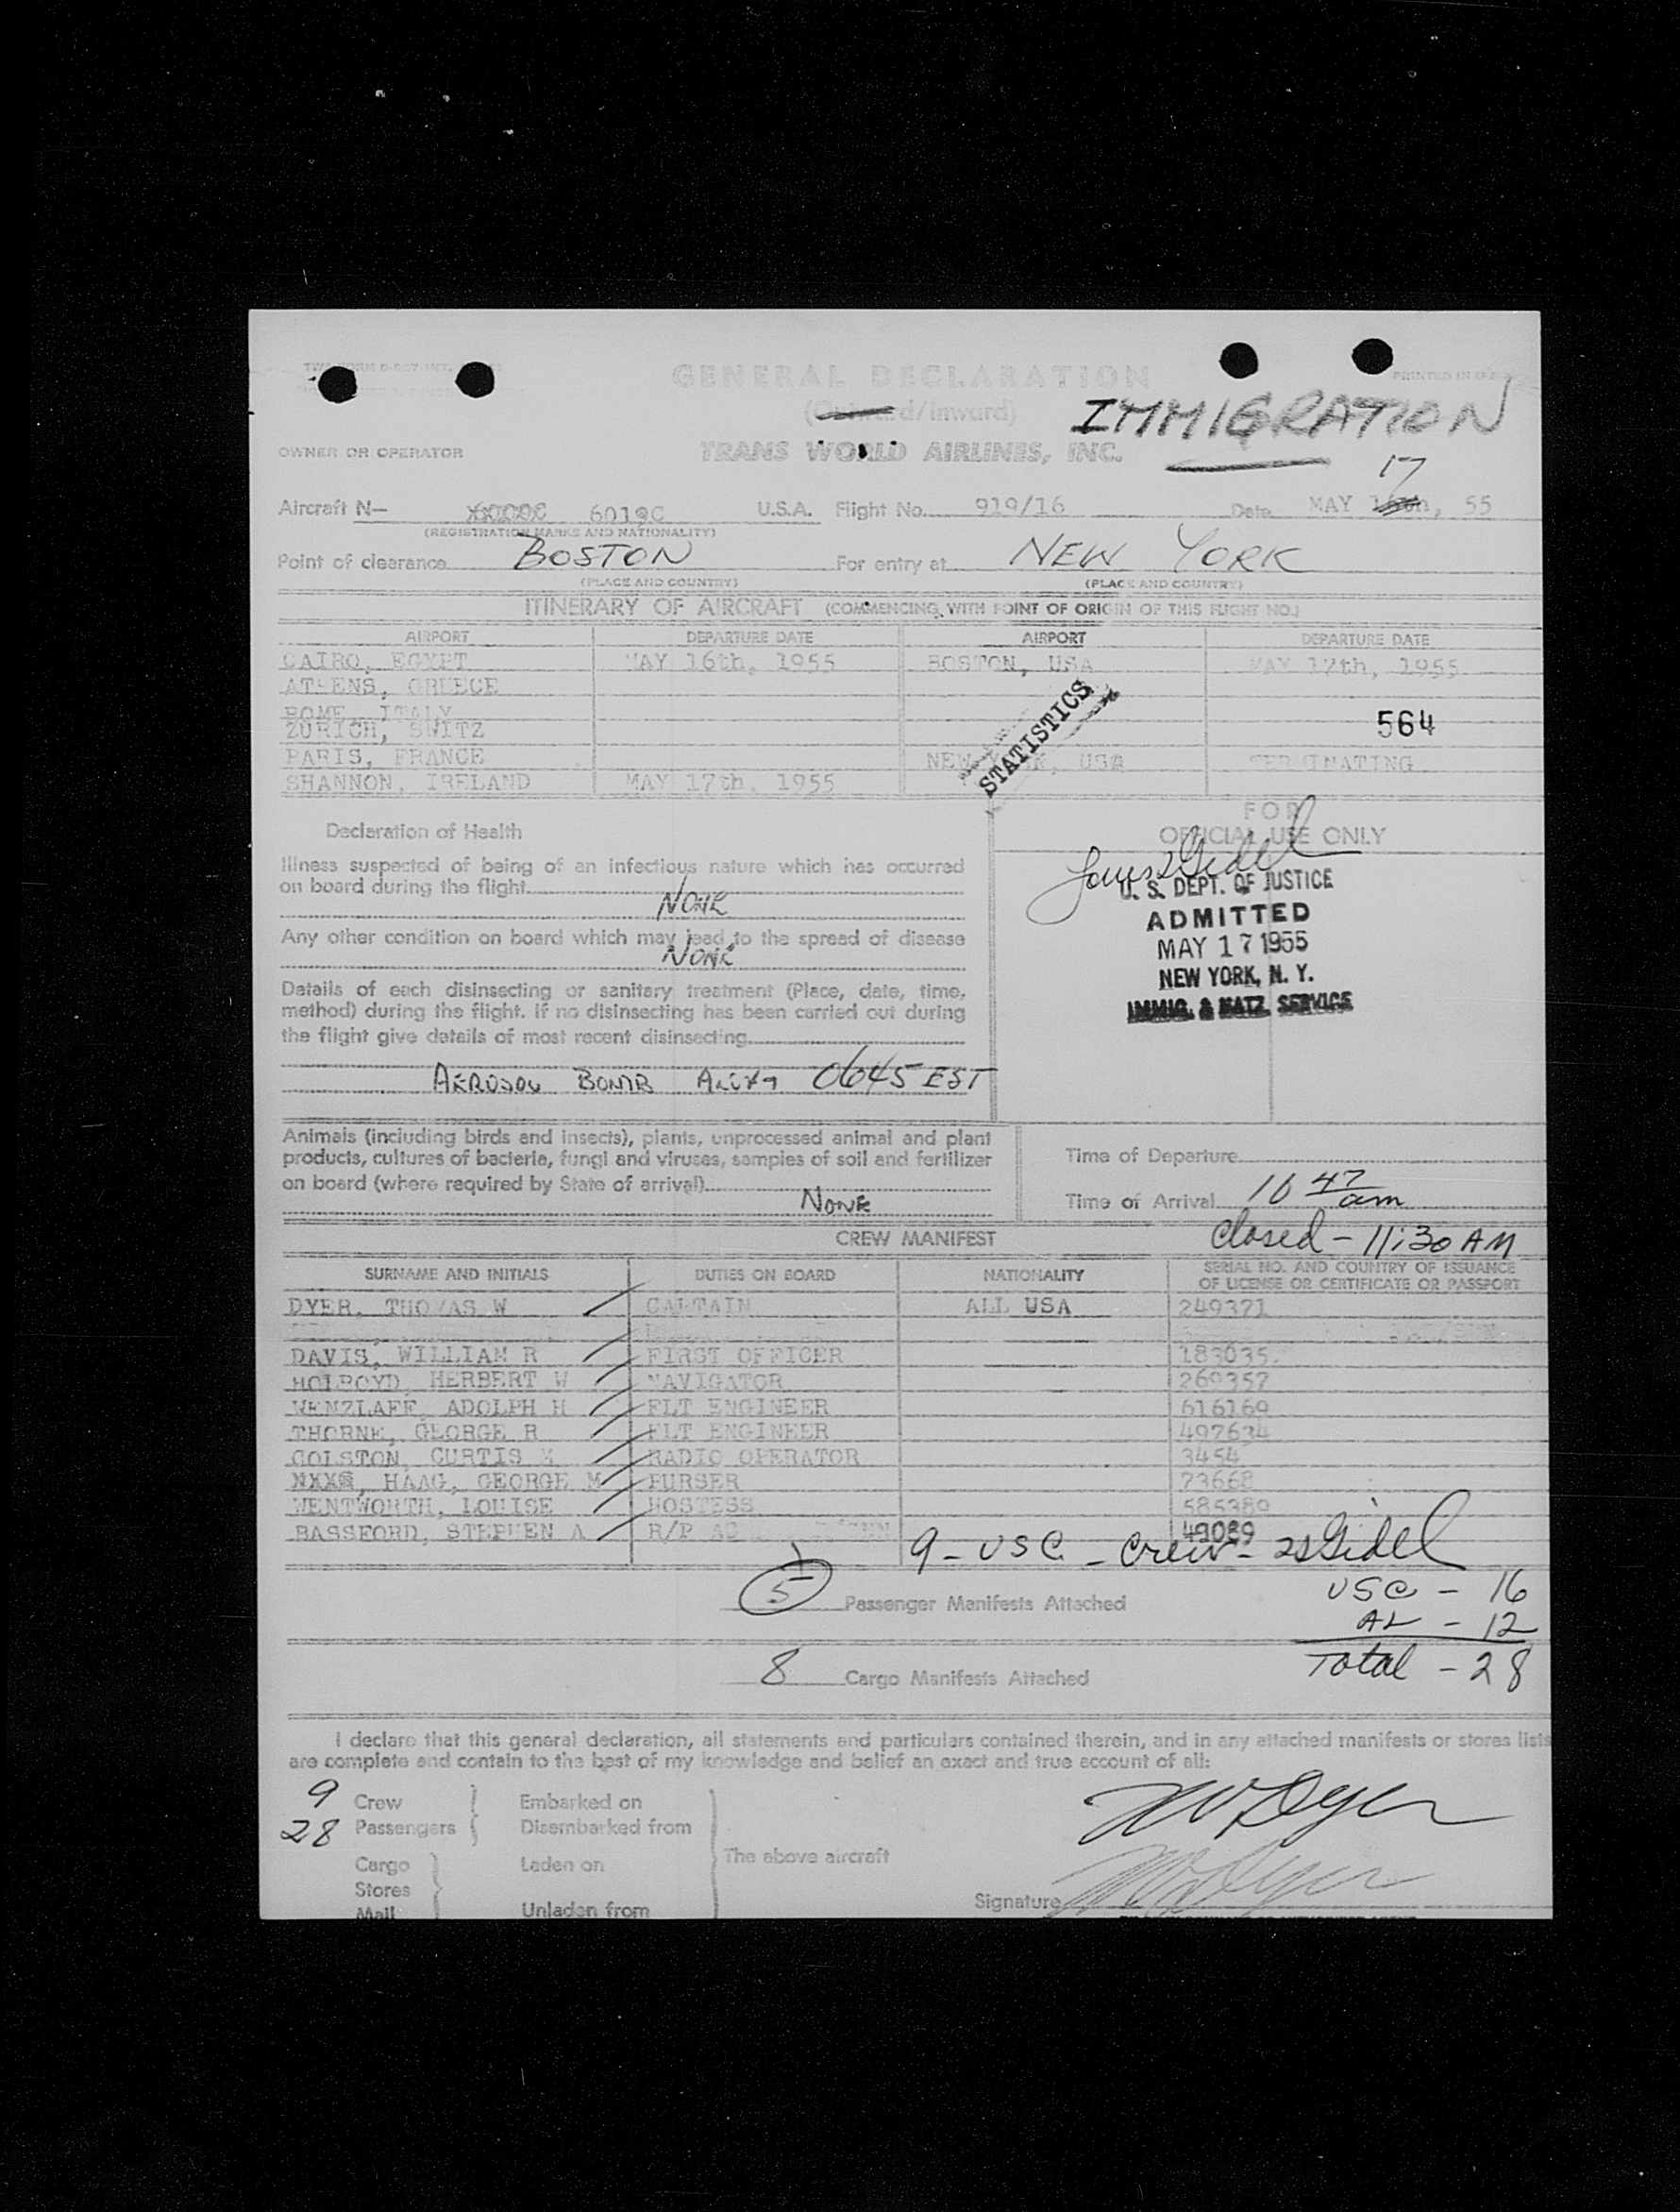 GENERAL DECLARATION
(Outward/Inward)
IMMIGRATION
OWNER OR OPERATOR
TRANS WORLD AIRLINES, INC.
17
Aircraft N— 6019C U.S.A. Flight No. 919/16 Date MAY 16th, 55
(REGISTRATION MARKS AND NATIONALITY)
Point of clearance BOSTON For entry at NEW YORK
(PLACE AND COUNTRY) (PLACE AND COUNTRY)
ITINERARY OF AIRCRAFT (COMMENCING WITH POINT OF ORIGIN OF THIS FLIGHT NO.)
AIRPORT DEPARTURE DATE AIRPORT DEPARTURE DATE
CAIRO, EGYPT MAY 16th, 1955 BOSTON, USA MAY 17th, 1955
ATHENS, GREECE
ROME, ITALY
ZURICH, SWITZ 564
STATISTICS
PARIS, FRANCE NEW YORK, USA TERMINATING
SHANNON, IRELAND MAY 17th, 1955
FOR
Declaration of Health OFFICIAL USE ONLY
Illness suspected of being of an infectious nature which has occurred
on board during the flight
None
Any other condition on board which may lead to the spread of disease
None
Details of each disinsecting or sanitary treatment (Place, date, time,
method) during the flight. If no disinsecting has been carried out during
the flight give details of most recent disinsecting
AEROSOL BOMB 0645 EST
U. S. DEPT. OF JUSTICE
ADMITTED
MAY 17 1955
NEW YORK, N. Y.
IMMIG. & NATZ. SERVICE
Animals (including birds and insects), plants, unprocessed animal and plant
products, cultures of bacteria, fungi and viruses, samples of soil and fertilizer
on board (where required by State of arrival)
None
Time of Departure
Time of Arrival 10 47 am
closed - 11:30 AM
CREW MANIFEST
SURNAME AND INITIALS DUTIES ON BOARD NATIONALITY SERIAL NO. AND COUNTRY OF ISSUANCE
OF LICENSE OR CERTIFICATE OR PASSPORT
DYER, THOMAS W CAPTAIN ALL USA 249371
DAVIS, WILLIAM R FIRST OFFICER 183035
HOLROYD, HERBERT W NAVIGATOR 269357
WENZLAFF, ADOLPH H FLT ENGINEER 616169
THORNE, GEORGE R FLT ENGINEER 497634
COLSTON, CURTIS RADIO OPERATOR 3454
HAAG, GEORGE M PURSER 73668
WENTWORTH, LOUISE HOSTESS 585389
BASSFORD, STEPHEN A R/P 49089
9 - USC - Crew - Gidel
5 Passenger Manifests Attached
USC - 16
AL - 12
Total - 28
8 Cargo Manifests Attached
I declare that this general declaration, all statements and particulars contained therein, and in any attached manifests or stores lists
are complete and contain to the best of my knowledge and belief an exact and true account of all:
9 Crew Embarked on
28 Passengers Disembarked from
The above aircraft
Cargo Laden on
Stores
Mail Unladen from
Signature TW Dyer